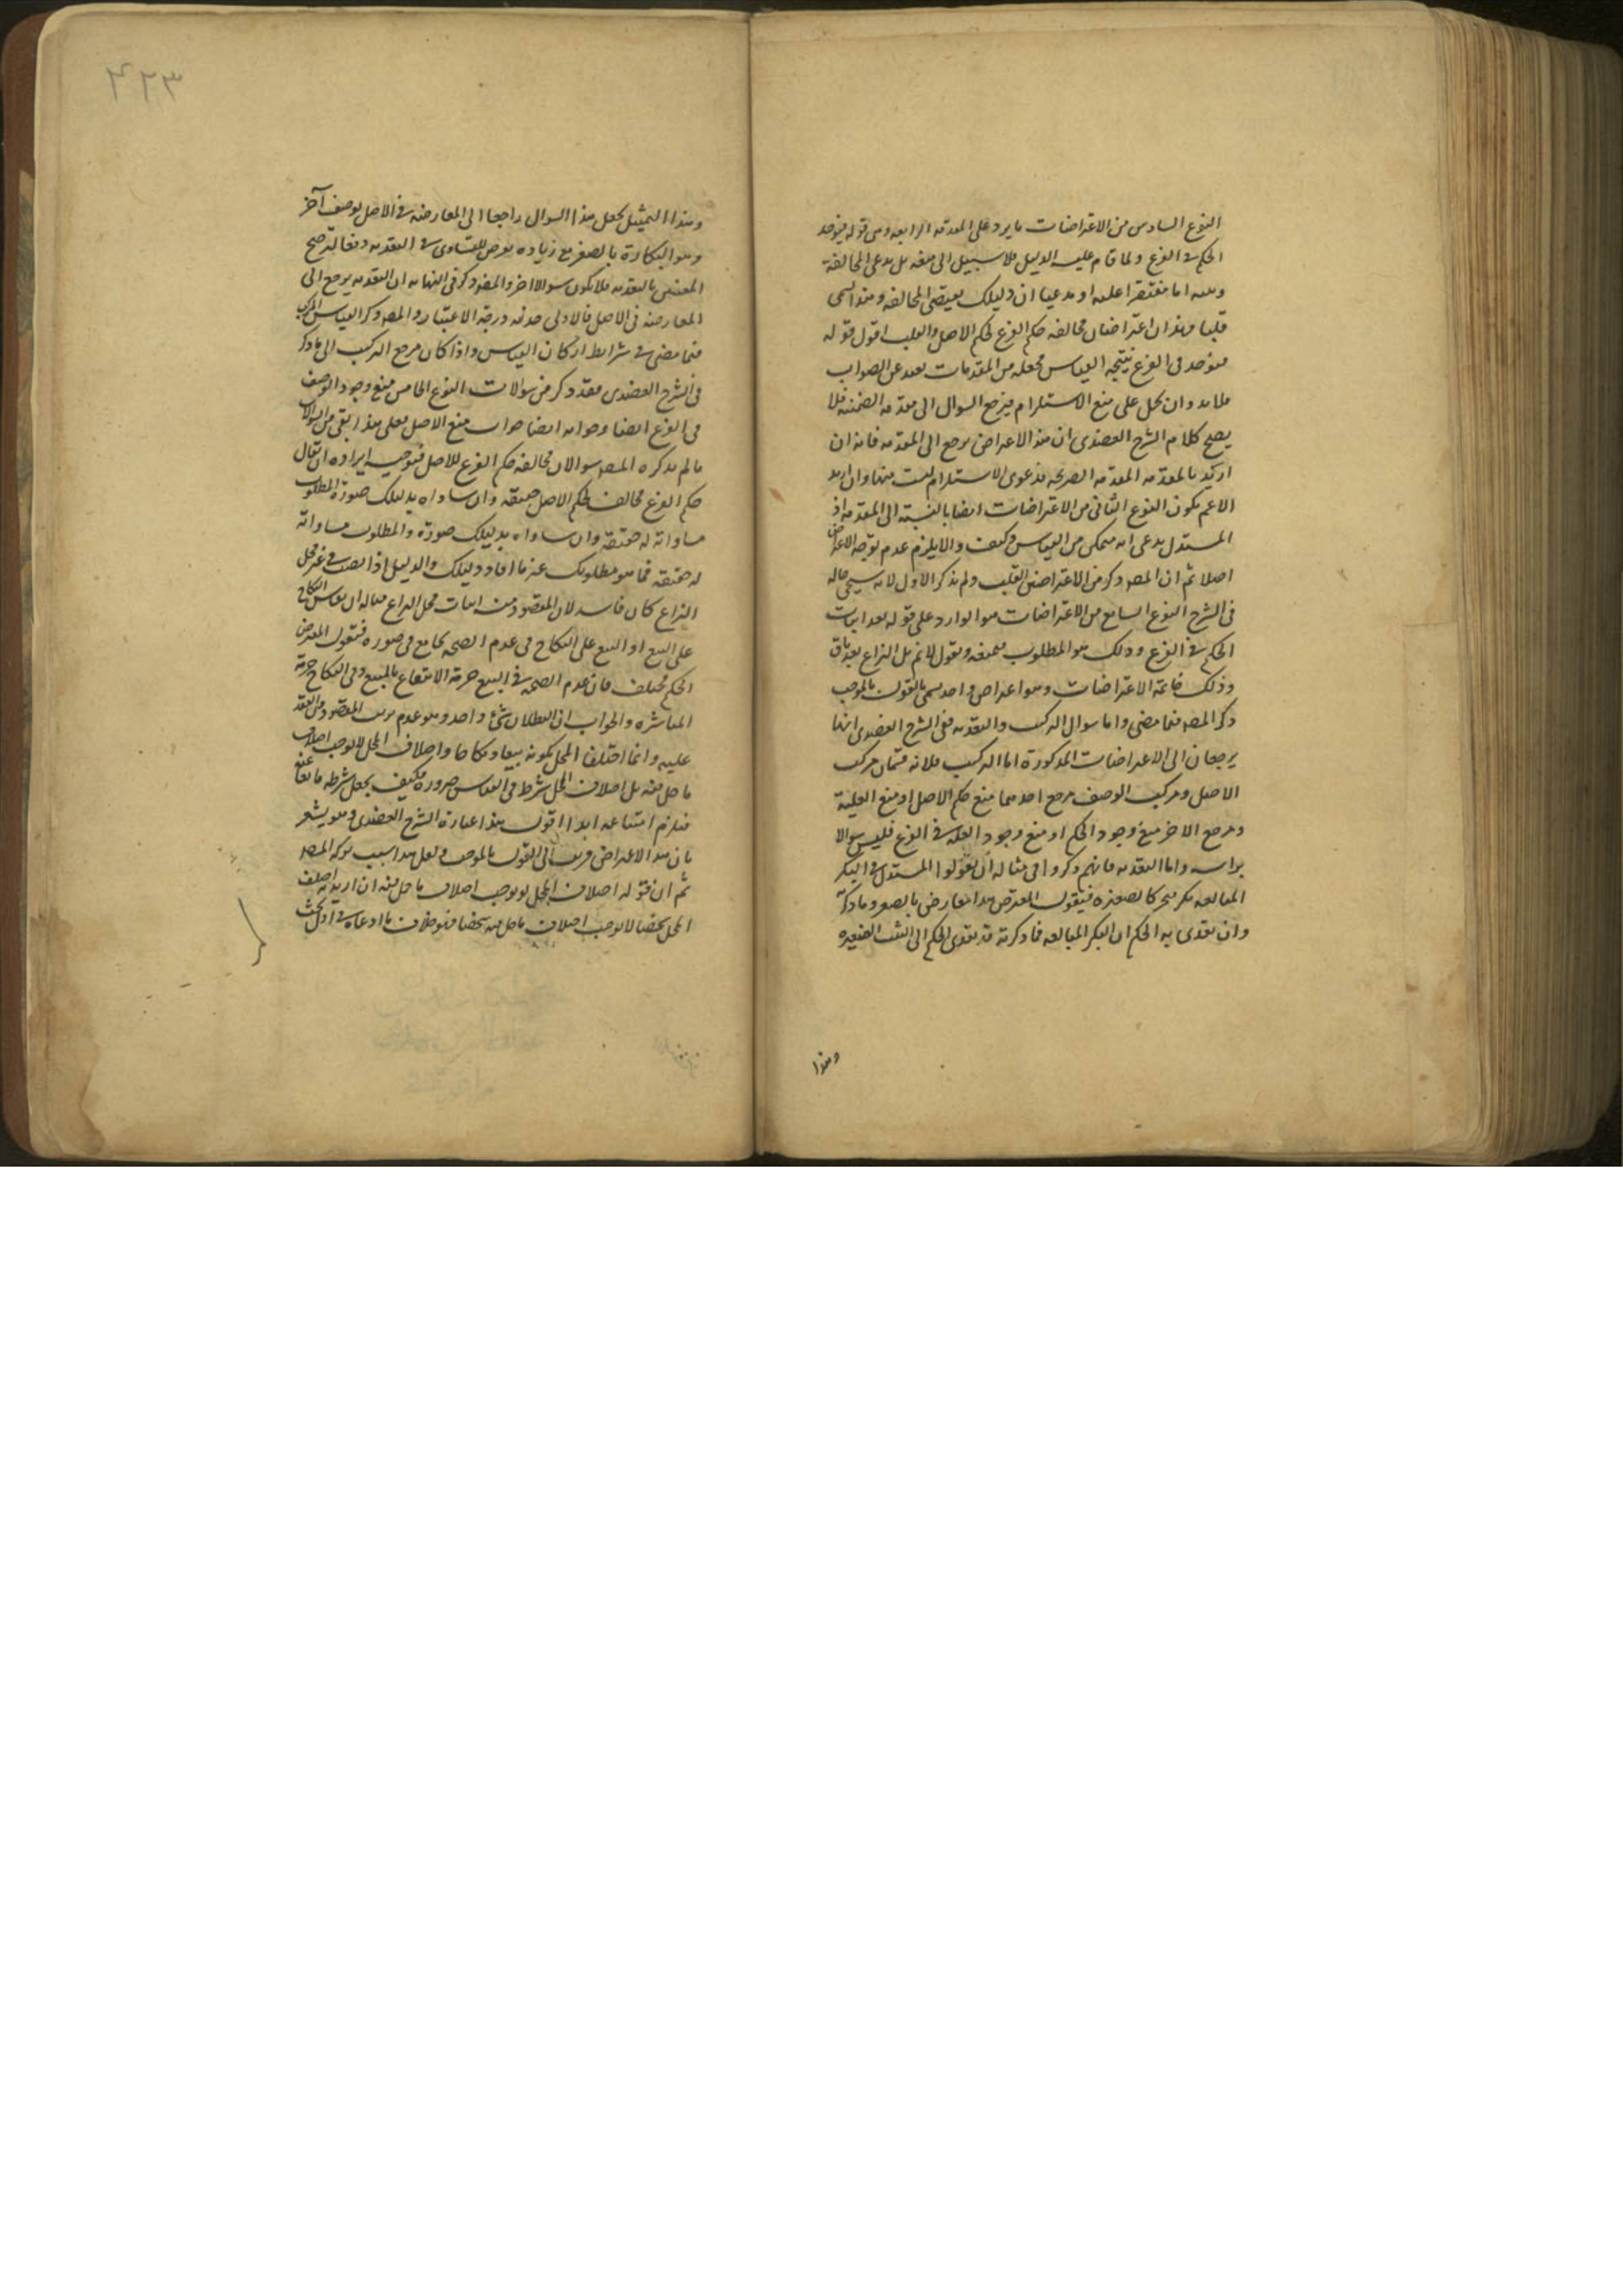 النوع السادس من الاعتراضات ما يرد على المقدمة الرابعة وهي قوله فيوجد
الحكم في الفرع ولما قام عليه الدليل فلا سبيل الى منعه بل يدعي المخالفة
وبعده اما مقتصرا عليه او مدعيا ان دليلك يقتضي المخالفة وهذا يسمى
قلبا فهذان اعتراضان مخالفة حكم الفرع لحكم الاصل والقلب اقول قوله
فيوجد في الفرع نتيجة القياس فجعله من المقدمات بعيد عن الصواب
فلا بد وان يحمل على منع الاستلزام فيرجع السوال الى مقدمة الضمنية فلا
يصح كلام الشرح العضدي ان هذا الاعتراض يرجع الى المقدمة فانه ان
اريد بالمقدمة المقدمة الصريحة فدعوى الاستلزام ليست منها وان اريد
الاعم يكون النوع الثاني من الاعتراضات ايضا بالنسبة الى المقدمة اذ
المستدل يدعي انه متمكن من القياس وكيف والا يلزم عدم توجه الاعتراض
اصلا ثم ان المصـ ذكر من الاعتراضين القلب ولم يذكر الاول لانه سيجي حاله
في الشرح النوع السابع من الاعتراضات هو الوارد على قوله بعد اثبات
الحكم في الفرع وذلك هو المطلوب فيمنعه ويقول لا نم بل النزاع بعد باق
وذلك خاتمة الاعتراضات وهو اعتراض واحد يسمى بالقول بالموجب
ذكر المصـ فيما مضى واما سوال التركيب والتعدية ففي الشرح العضدي انهما
يرجعان الى الاعتراضات المذكورة اما التركيب فلانه قسمان مركب
الاصل ومركب الوصف مرجع احدهما منع حكم الاصل او منع العلية
ومرجع الاخر منع وجود الحكم او منع وجود العلة في الفرع فليس سوالا
براسه واما التعدية فانهم ذكروا في مثاله ان يقولوا المستدل في البكر
البالغة بكر فتجبر كالصغيرة فيقول المعترض هذا معارض بالصغر وما ذكرته
وان تعدى به الحكم الى البكر البالغة فما ذكرته قد تعدى الحكم الى الثيب الصغيرة
وهذا
٤٢٣
وهذا التمثيل يجعل هذا السوال راجعا الى المعارضة في الاصل بوصف آخر
وهو البكارة بالصغر مع زيادة تعرض للتساوي في التعدية دفعا لترجيح
المعين بالتعدية فلا يكون سوالا اخر والمصـ ذكر في النهاية ان التعدية يرجع الى
المعارضة في الاصل فالاولى حذفه درجة الاعتبار والمصـ ذكر القياس المركب
فيما مضى في شرايط اركان القياس واذا كان مرجع التركيب الى ما ذكر
في الشرح العضدي فقد ذكر من سوالات النوع الخامس منع وجود الوصف
في الفرع ايضا وجوابه ايضا جواب منع الاصل فعلى هذا بقي من السوالات
ما لم يذكره المصـ سوالان مخالفة حكم الفرع للاصل فتوجيه ايراده ان يقال
حكم الفرع مخالف لحكم الاصل حقيقة وان ساواه بدليلك صورة والمطلوب
مساواته له حقيقة وان ساواه بدليلك صورة والمطلوب مساواته
له حقيقة فما هو مطلوبك غير ما افاد دليلك والدليل اذا نصب في غير محل
النزاع كان فاسدا لان المقصود منه اثبات محل النزاع مثاله ان يقاس النكاح
على البيع او البيع على النكاح في عدم الصحة بجامع في صورة فيقول المعترض
الحكم مختلف فان عدم الصحة في البيع حرمة الانتفاع بالمبيع وفي النكاح حرمة
المباشرة والجواب ان البطلان شئ واحد وهو عدم ترتب المقصود من العقد
عليه وانما اختلفا المحل بكونه بيعا ونكاحا واختلاف المحل لا يوجب اختلاف
ما حل فيه بل اختلاف المحل شرط في القياس ضرورة فكيف يجعل شرطه مانعا عنه
فيلزم امتناعه ابدا اقول هذا عبارة الشرح العضدي وهو يشعر
بان هذا الاعتراض قريب الى القول بالموجب ولعل هذا سبب تركه المصـ
ثم ان قوله اختلاف المحل لا يوجب اختلاف ما حل فيه ان اريد به اختلف
المحل شخصا لا يوجب اختلاف ما حل فيه شخصا فهو خلاف ما ادعاه في اول بحث